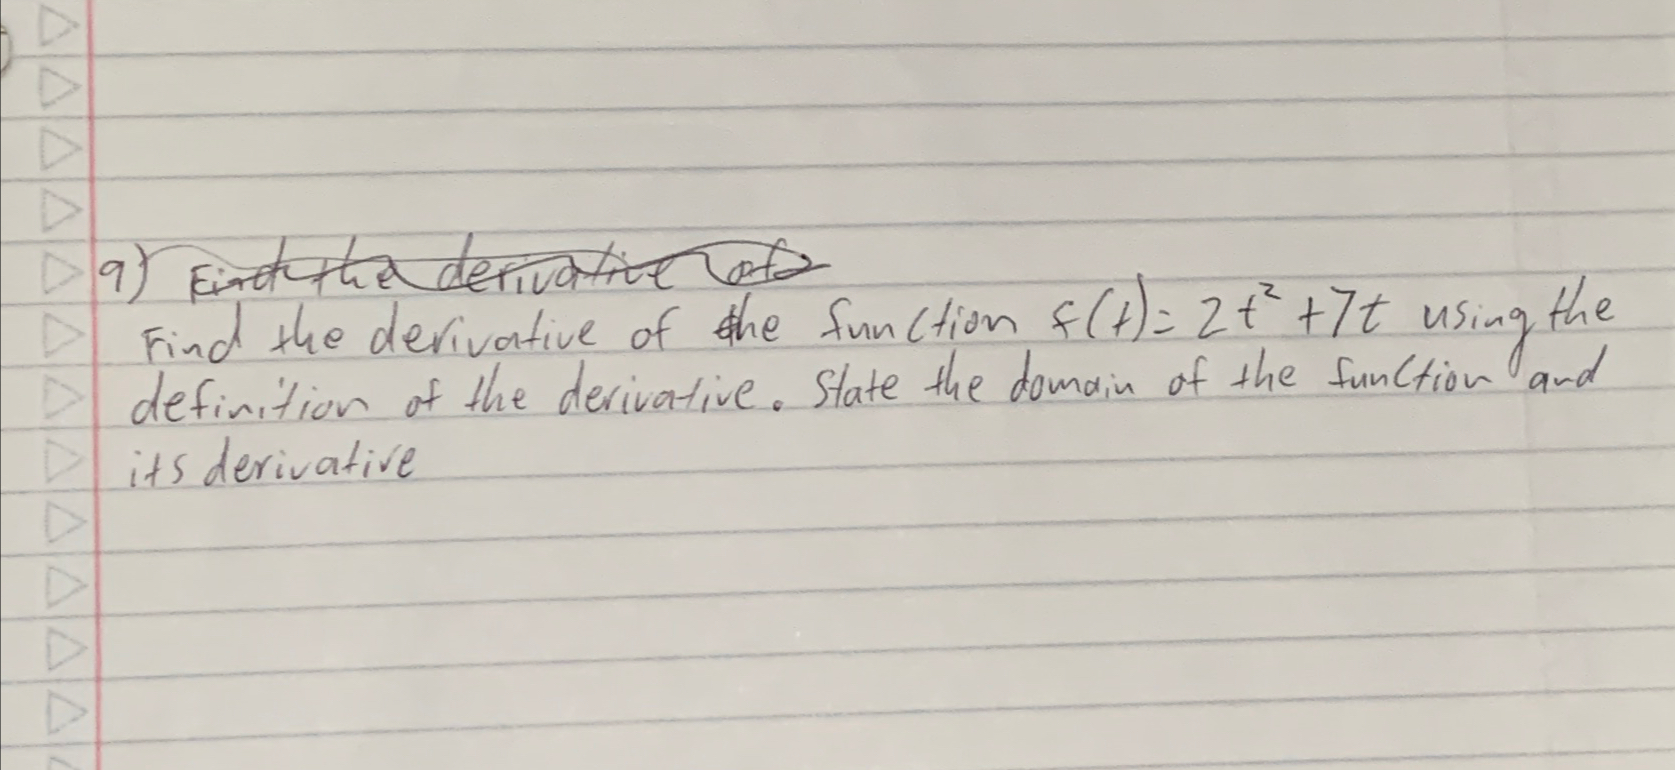 9) Find the derivative of
Find the derivative of the function f(t)= 2t² +7t using the
definition of the derivative. State the domain of the function and
its derivative